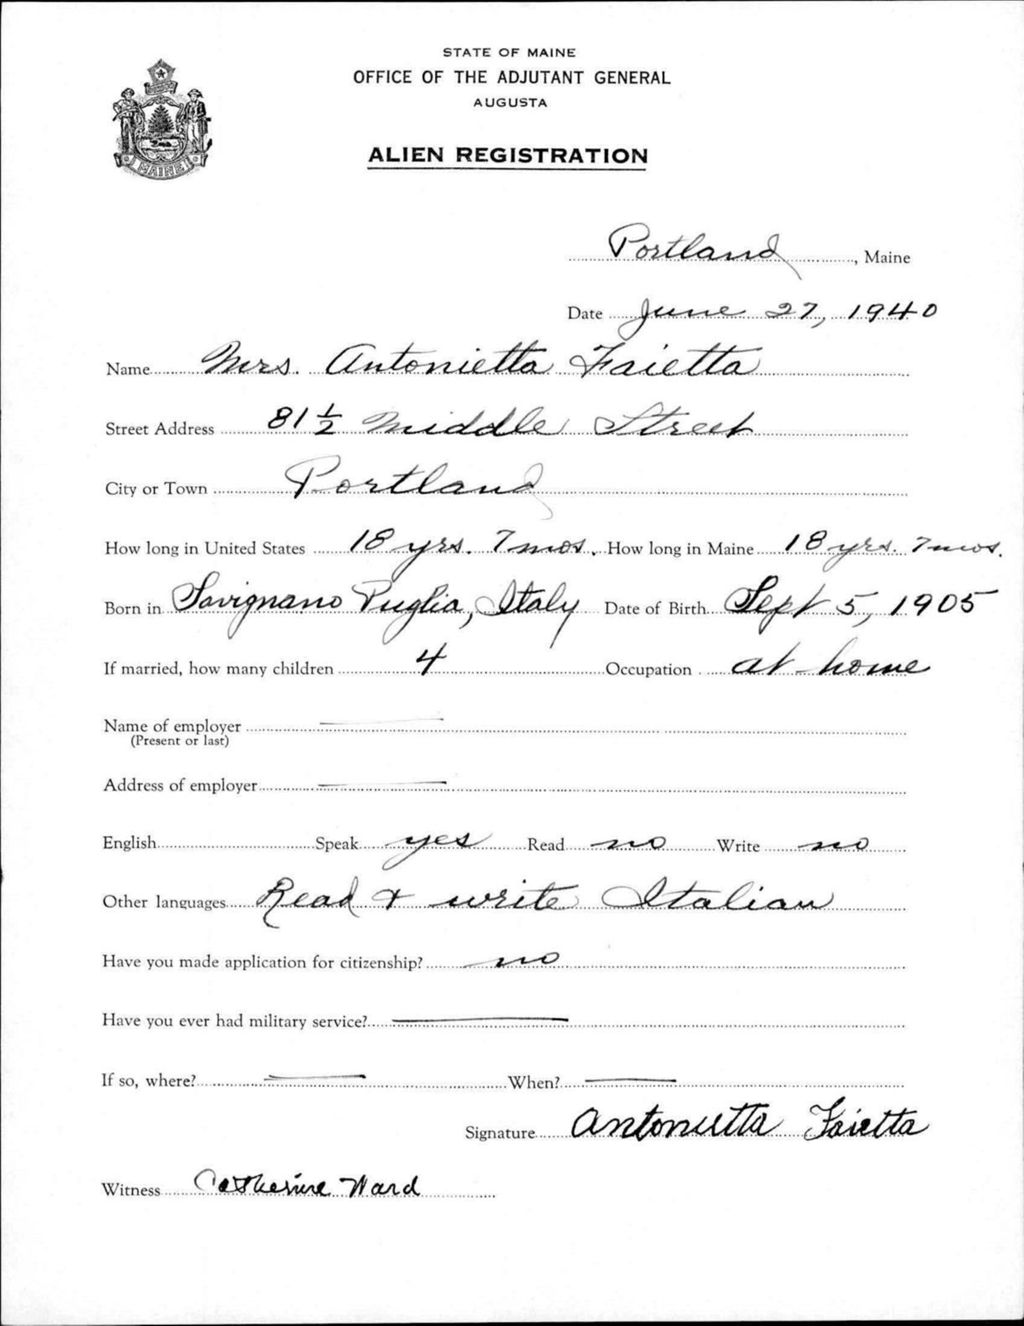 STATE OF MAINE
OFFICE OF THE ADJUTANT GENERAL
AUGUSTA
ALIEN REGISTRATION
MAINE
Portland, Maine
Date June 27, 1940
Name Mrs. Antonietta Faietta
Street Address 81 1/2 Middle Street
City or Town Portland
How long in United States 18 yrs. 7 mos. How long in Maine 18 yrs. 7 mos.
Born in Savignano Puglia, Italy Date of Birth Sept 5, 1905
If married, how many children 4 Occupation at home
Name of employer
(Present or last)
Address of employer
English Speak yes Read no Write no
Other languages Read + write Italian
Have you made application for citizenship? no
Have you ever had military service?
If so, where? When?
Signature Antonietta Faietta
Witness Catherine Ward